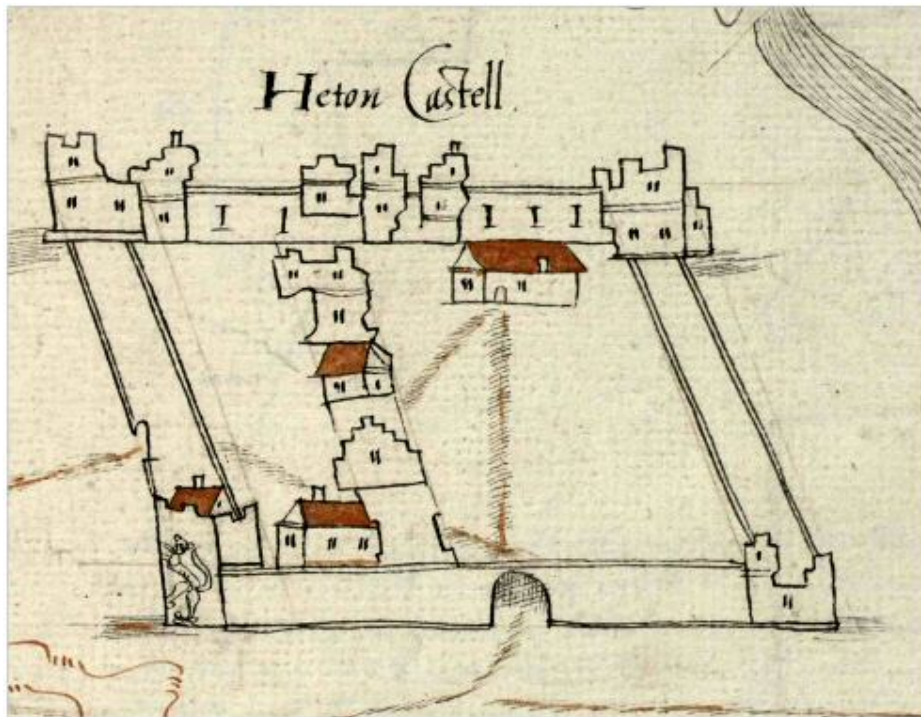 Heton Castell.